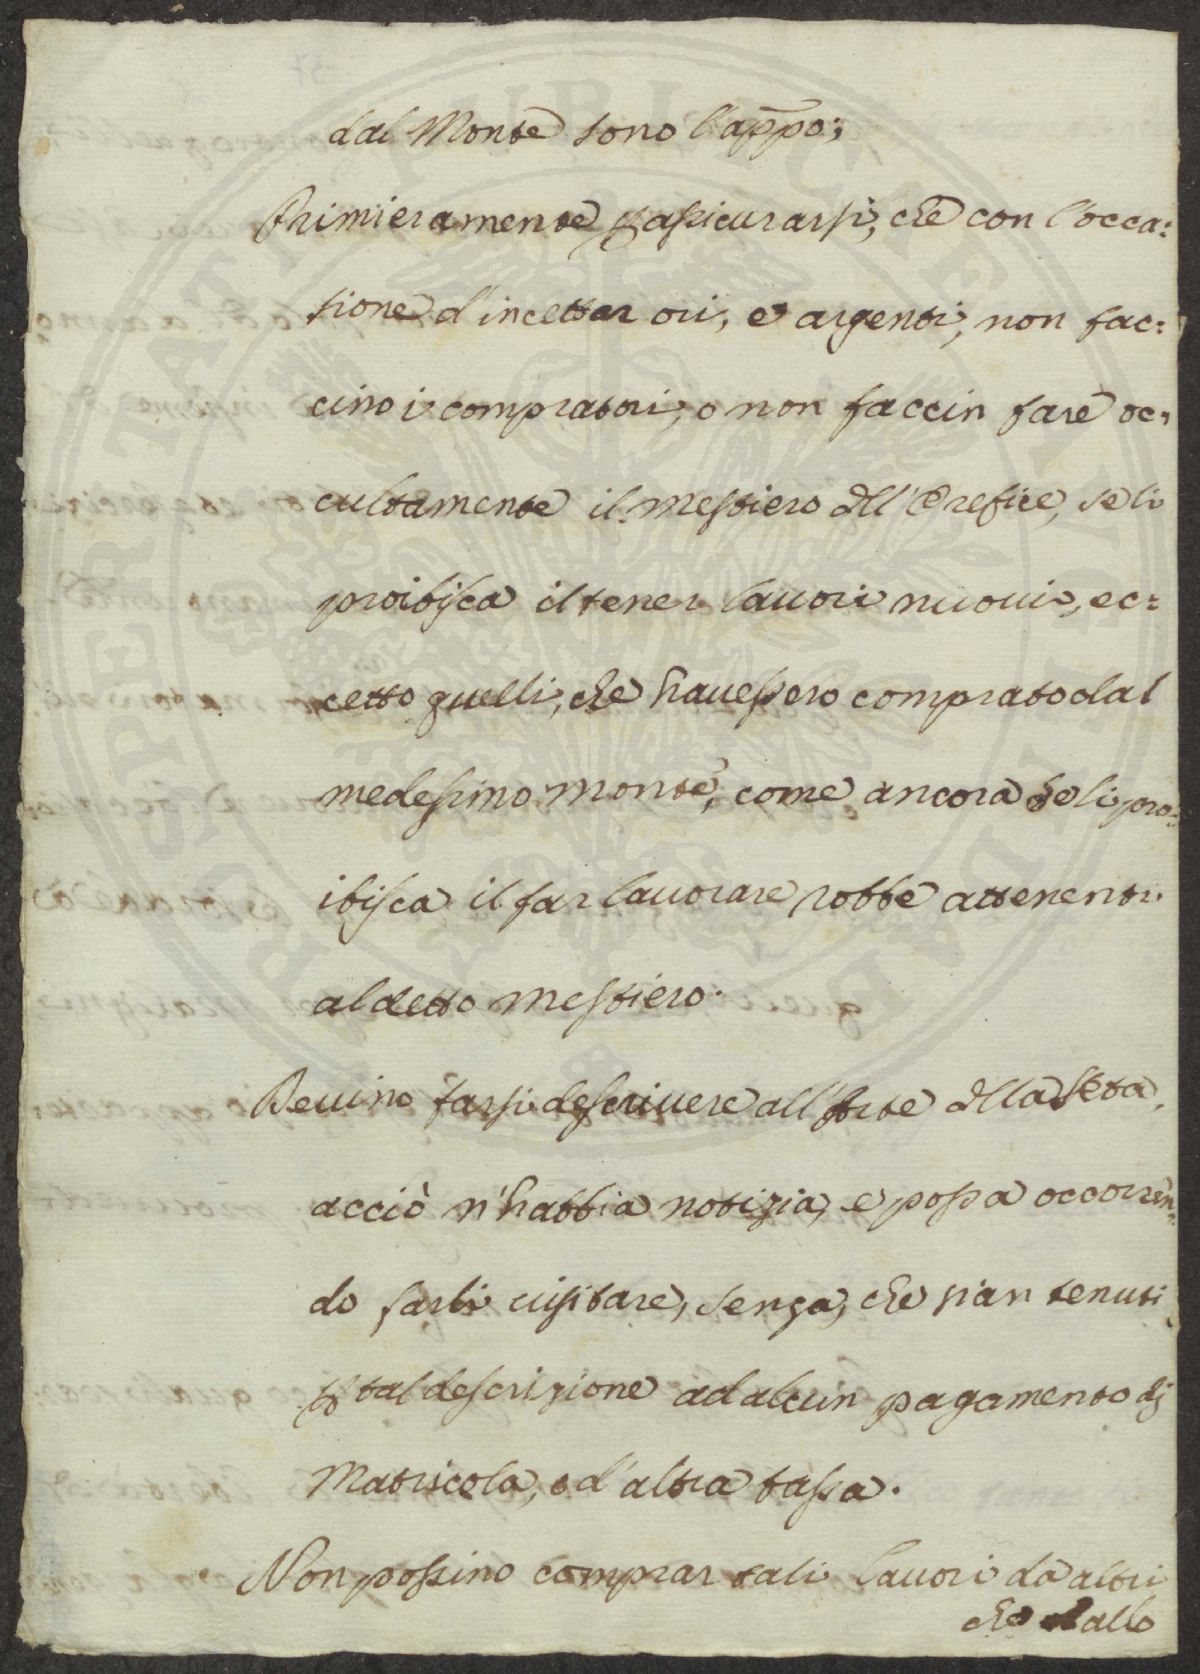 dal Monte sono l'app.o;
Primieramente p assicurarsi, che con l'occa:
sione d'incettar ori, e argenti, non fac:
cino i compratori, o non faccin fare oc:
cultamente il mestiero dll'Orefice, se li
proibisca il tener lavori nuovi, ec:
cetto quelli, che havessero comprato dal
medesimo monte, come ancora se li pro:
ibisca il far lavorare robbe attenenti
al detto mestiero.
Devino farsi descrivere all'Arte dlla Seta,
acciò n'habbia notizia, e possa occorren:
do farli visitare, senza, che sian tenuti
p tal descrizione ad alcun pagamento di
Matricola, o d'altra tassa.
Non possino comprar tali lavori da altri
che dallo